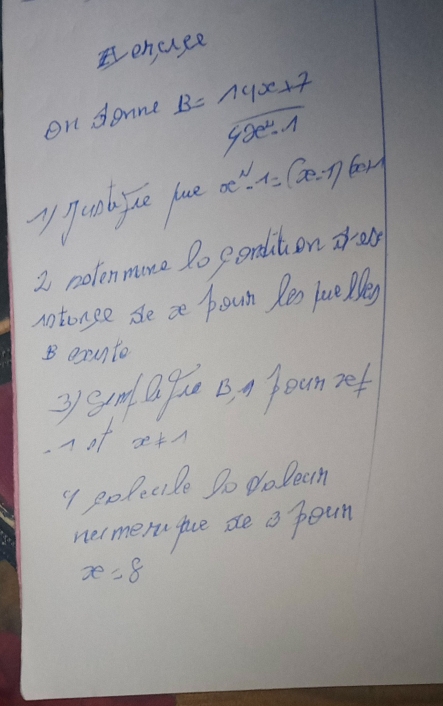 Exercice
on donne B= 14x+7
4x²-1
1) Justifie que x²-1=(x-1)(x+1
2 determine la condition d'exi
istence de x pour les quelles
B existe
3) simplifie B, pour x≠
-1 et x≠1
4 calcule la valeur
numerique de B pour
x=8